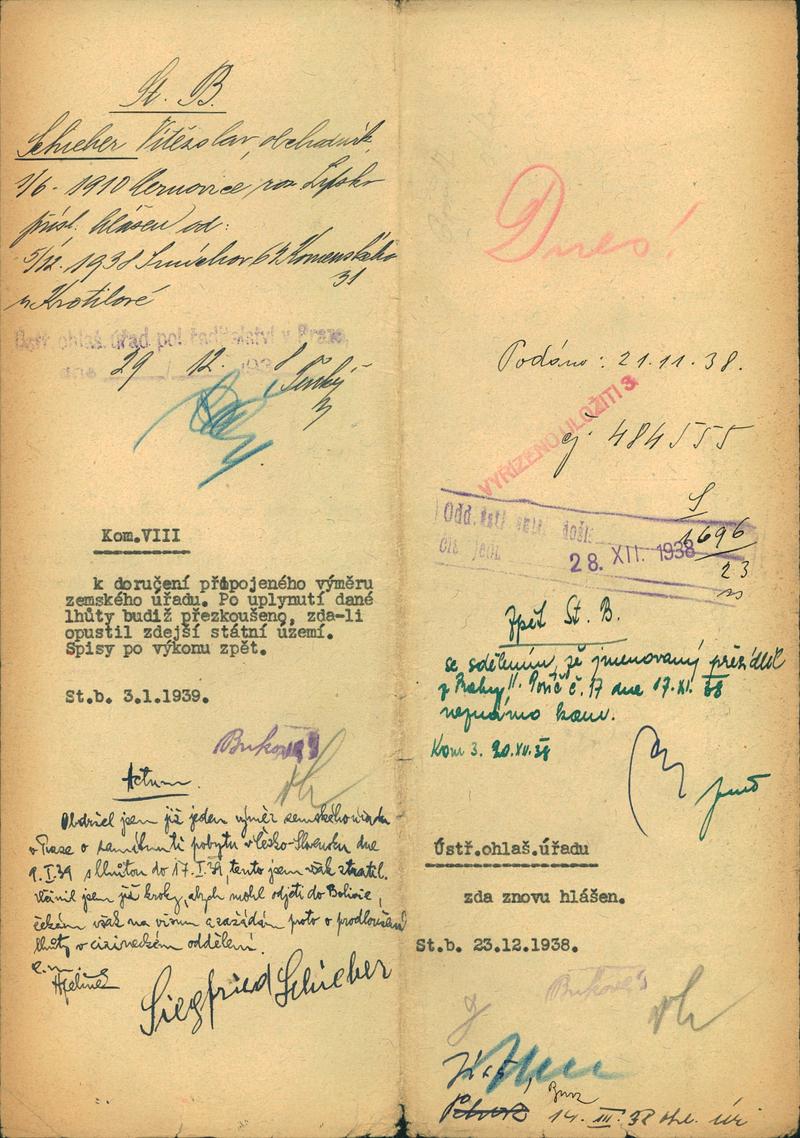 St. B.
Schieher Vítězslav, obchodník,
1/6. 1910 Černovice roz. Lipsko
přísl. hlášen od:
5/12. 1938 Smíchov 62 Komenského
31
u Krotilové
Ústř. ohlaš. úřad pol. ředitelství v Praze,
dne 29 / 12. 1938
Kom.VIII
k doručení připojeného výměru
zemského úřadu. Po uplynutí dané
lhůty budiž přezkoušeno, zda-li
opustil zdejší státní území.
Spisy po výkonu zpět.
St.b. 3.1.1939.
Actum.
Obdržel jsem již jeden výměr zemského úřadu
v Praze o zamítnutí pobytu v Česko-Slovensku dne
9.I.39 s lhůtou do 17.I.39, tento jsem však ztratil.
Učinil jsem již kroky, abych mohl odjeti do Bolivie,
čekám však na visum a zažádám proto o prodloužení
lhůty v cizineckém oddělení.
Siegfried Schieher
Dnes!
Podáno: 21.11.38.
VYŘÍZENO ULOŽITI 3
čj. 484555
S
1696
23
Odd. došlo
čís. jedn. 28. XII. 1938
Zpět St. B.
se sdělením, že jmenovaný přesídlil
z Prahy II. Poříč č. 17 dne 17.XI.38
neznámo kam.
Kom 3. 20.XII.38
Ústř.ohlaš.úřadu
zda znovu hlášen.
St.b. 23.12.1938.